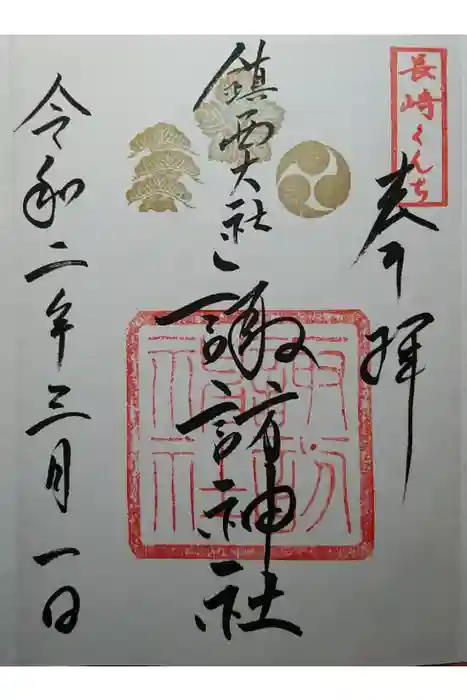 長崎くんち
奉拝
鎮西大社
諏訪神社
令和二年三月一日
諏訪神社